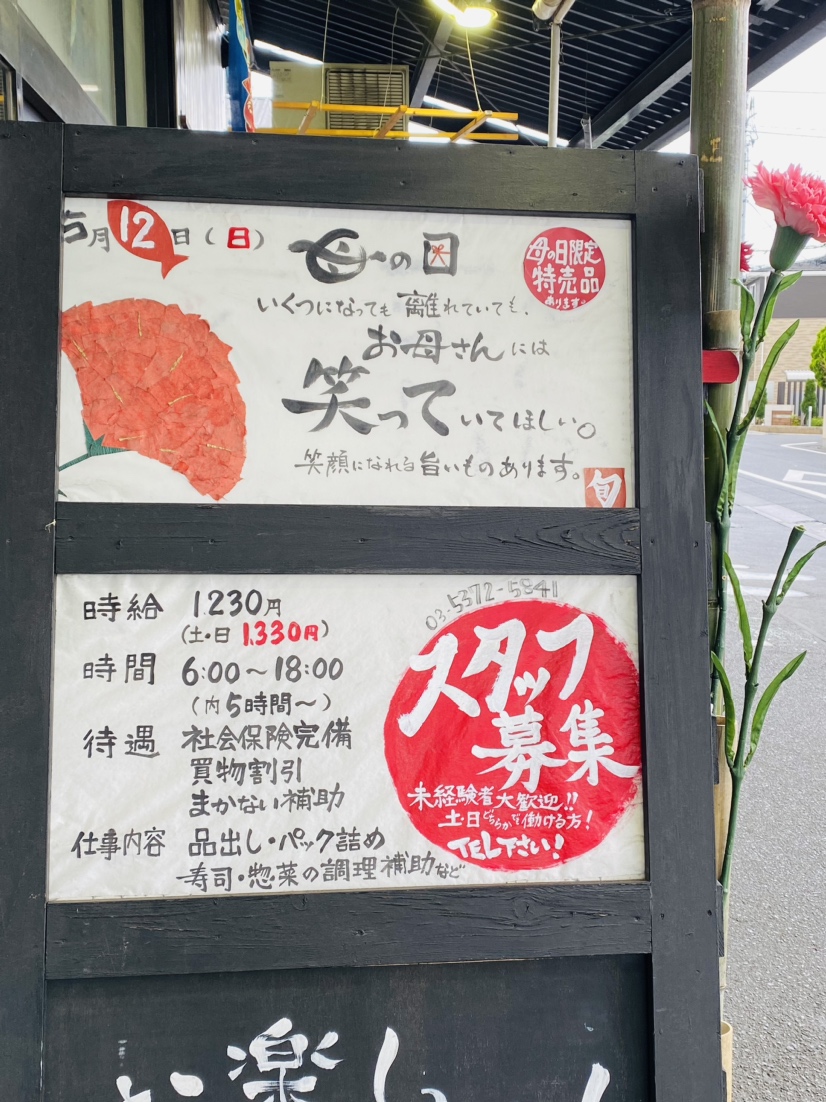 5月12日(日)
母の日
母の日限定
特売品
あります。
いくつになっても離れていても、
お母さんには
笑っていてほしい。
笑顔になれる旨いものあります。
旬
時給 1.230円
(土・日 1.330円)
時間 6:00～18:00
(内5時間～)
待遇 社会保険完備
買物割引
まかない補助
仕事内容 品出し・パック詰め
寿司・惣菜の調理補助など
03.5372-5841
スタッフ
募集
未経験者大歓迎!!
土・日どちらかを働ける方!
TEL下さい!
楽し